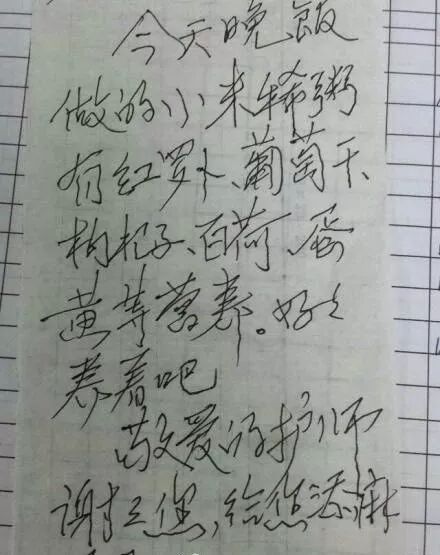 今天晚飯
做的小米稀粥
有红罗卜、葡萄干、
枸杞子、百荷、蛋
黄等营养。好好
养着吧
敬爱的护师
谢谢您,给您添麻